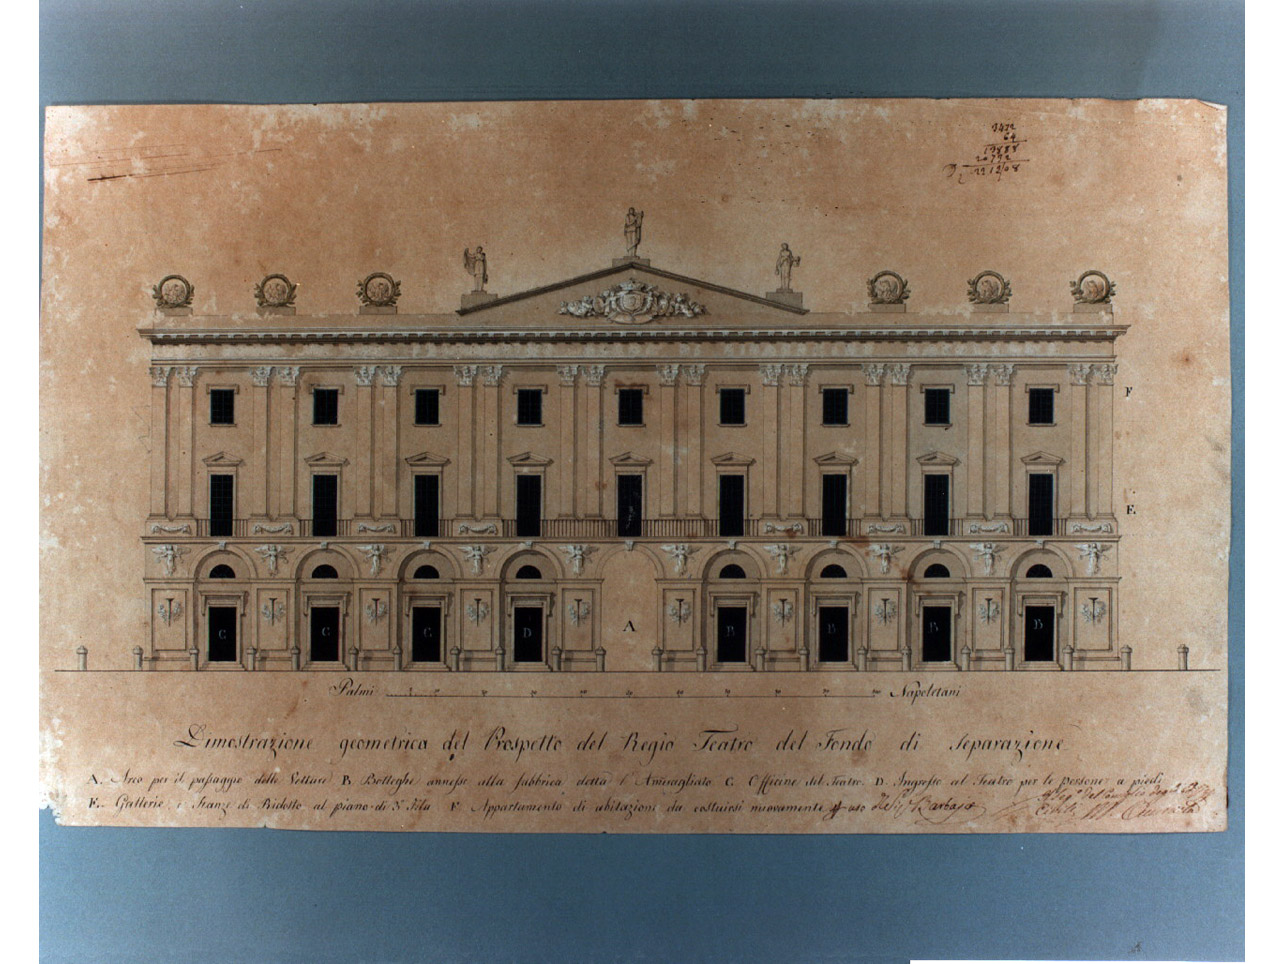 3472
64
13888
F
E.
C
C
C
D
A
B
B
B
B
Palmi Napoletani
Dimostrazione geometrica del Prospetto del Regio Teatro del Fondo di Separazione
A. Arco per il passaggio delle Vetture B. Botteghe annesse alla fabbrica detta l'Amiragliato C. Officine del Teatro. D. Ingresso al Teatro per le Persone a piedi
E. Gallerie, e Stanze di Ridotto al piano di 2.ª fila F. Appartamento di abitazioni da costuirsi nuovamente uso del Sig.r Barbaja